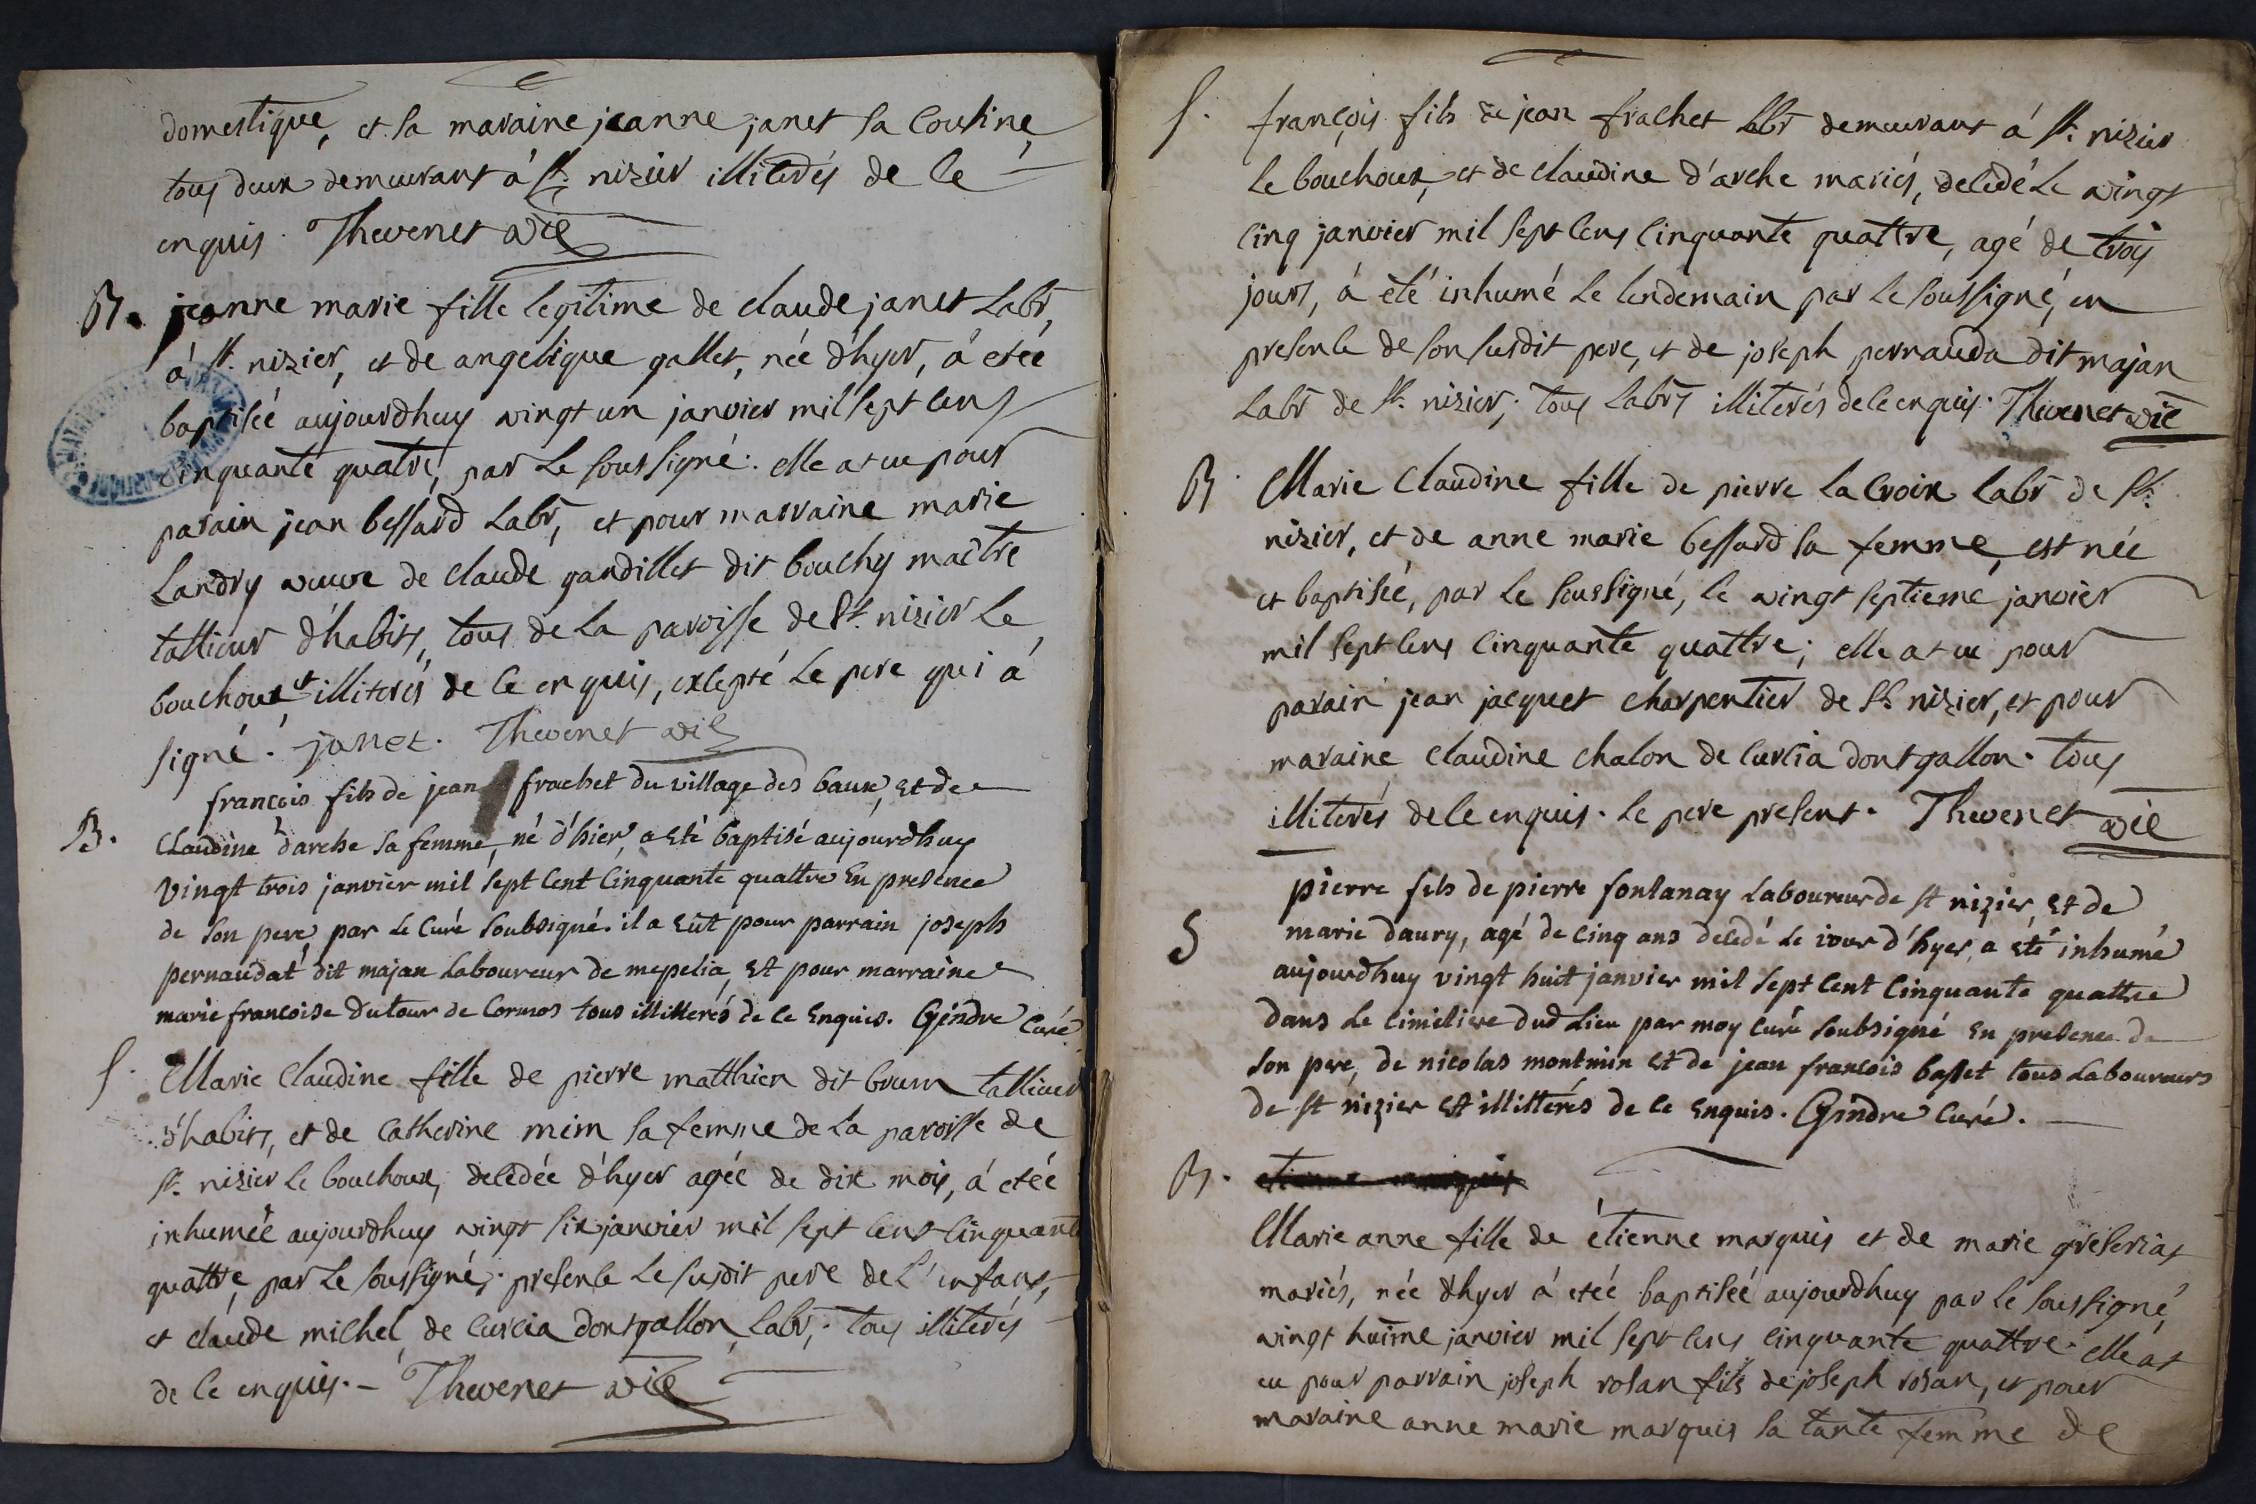 domestique, et sa maraine jeanne janet sa Cousine,
tous deux demeurant à St. nizier illiterés de ce
enquis. Thevenet vic
B. jeanne marie fille legitime de claude janet Labr,
à St. nizier, et de angelique gallet, née d'hyer, à etée
baptisée aujourdhuy vingt un janvier mil sept cens
cinquante quatre, par Le soussigné: elle at eu pour
parain jean bessard Labr, et pour marraine marie
Landry veuve de claude gandillet dit bouchy maitre
tallieur d'habits, tous de La paroisse de St. nizier Le
bouchoux et illiterés de ce enquis, excepté Le pere qui à
signé. janet. Thevenet vic
françois fils de jean frachet du village des baux, et de
B. Claudine d'arche sa femme, né d'hier, a eté baptisé aujourdhuy
vingt trois janvier mil sept cent cinquante quattre En presence
de son pere, par Le Curé soubsigné. il a eût pour parrain joseph
pernaudat dit majan Laboureur de mepelia, et pour marraine
marie francoise Dutour de Cormos tous illitterés de ce Enquis. Gindre Curé
S. Marie Claudine fille de pierre matthieu dit brun tallieur
d'habits, et de Catherine mim sa femme de La paroisse de
St. nizier Le bouchoux, decedée d'hyer agée de dix mois, à etée
inhumée aujourdhuy vingt six janvier mil sept cent cinquante
quattre, par Le soussigné; presence Le susdit pere de L'enfant,
et claude michel de curcia dontgallon, Labr; tous illiterés
de ce enquis. - Thevenet vic
S. françois fils de jean frachet Labr demeurant à St. nizier
Le bouchoux, et de claudine d'arche mariés, decedé Le vingt
cinq janvier mil sept cens cinquante quattre, agé de trois
jours, à été inhumé Le Lendemain par Le soussigné, en
presence de son susdit pere, et de joseph pernauda dit majan
Labr de St. nizier; tous Labrs illiterés de ce enquis. Thevenet vic
B. Marie Claudine fille de pierre La Croix Labr de St.
nizier, et de anne marie bessard sa femme, est née
et baptisée, par Le soussigné, Le vingt septieme janvier
mil sept cens cinquante quattre; elle at eu pour
parain jean jacquet charpentier de St. nizier, et pour
maraine claudine chalon de Curcia dontgallon. tous
illiterés de ce enquis. Le pere present. Thevenet vic
pierre fils de pierre fontanay Laboureur de st nizier, et de
S marie daury, agé de cinq ans decedé Le jour d'hyer, a eté inhumé
aujourdhuy vingt huit janvier mil sept cent cinquante quattre
dans Le cimitiere dud Lieu par moy curé soubsigné en presence de
son pere, de nicolas montmin et de jean francois basset tous Laboureurs
de st nizier et illitterés de ce Enquis. Gindre Curé.
B. etienne marquis
Marie anne fille de étienne marquis et de marie greseriat
mariés, née d'hyer à etée baptisée aujourdhuy par Le soussigné,
vingt huime janvier mil sept cens cinquante quattre. elle at
eu pour parrain joseph rosan fils de joseph rosan, et pour
maraine anne marie marquis sa tante femme de